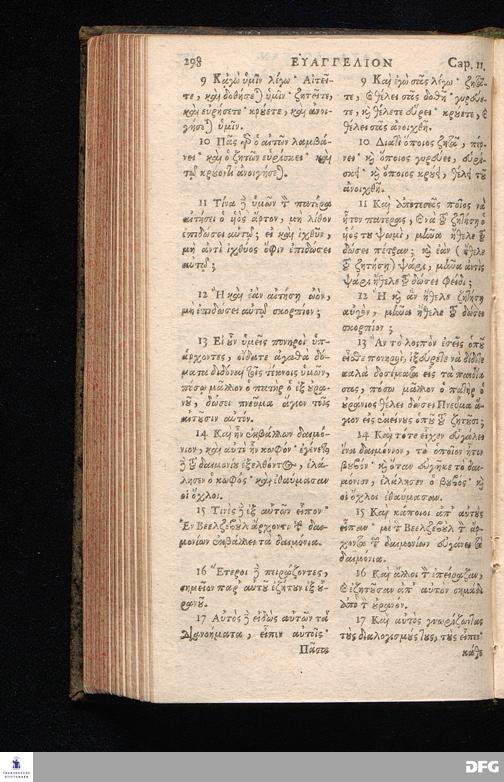 298 ΕΥΑΓΓΕΛΙΟΝ Cap. 11.
9 Κᾀγὼ ὑμῖν λέγω· Αἰτεῖ-
τε, καὶ δοθήσεται ὑμῖν· ζητεῖτε,
καὶ εὑρήσετε· κρούετε, καὶ ἀνοι-
γήσεται ὑμῖν.
10 Πᾶς γὰρ ὁ αἰτῶν λαμβά-
νει· καὶ ὁ ζητῶν εὑρίσκει· καὶ
τῷ κρούοντι ἀνοιγήσεται.
11 Τίνα δὲ ὑμῶν τὸν πατέρα
αἰτήσει ὁ υἱὸς ἄρτον, μὴ λίθον
ἐπιδώσει αὐτῷ; εἰ καὶ ἰχθὺν,
μὴ ἀντὶ ἰχθύος ὄφιν ἐπιδώσει
αὐτῷ;
12 Ἢ καὶ ἐὰν αἰτήσῃ ὠὸν,
μὴ ἐπιδώσει αὐτῷ σκορπίον;
13 Εἰ οὖν ὑμεῖς πονηροὶ ὑπ-
άρχοντες, οἴδατε ἀγαθὰ δό-
ματα διδόναι τοῖς τέκνοις ὑμῶν,
πόσῳ μᾶλλον ὁ πατὴρ ὁ ἐξ οὐρα-
νοῦ, δώσει πνεῦμα ἅγιον τοῖς
αἰτοῦσιν αὐτόν.
14 Καὶ ἦν ἐκβάλλων δαιμό-
νιον, καὶ αὐτὸ ἦν κωφόν· ἐγένετο
δὲ τοῦ δαιμονίου ἐξελθόντος, ἐλά-
λησεν ὁ κωφός· καὶ ἐθαύμασαν
οἱ ὄχλοι.
15 Τινὲς δὲ ἐξ αὐτῶν εἶπον·
Ἐν Βεελζεβοὺλ ἄρχοντι τῶν δαι-
μονίων ἐκβάλλει τὰ δαιμόνια.
16 Ἕτεροι δὲ πειράζοντες,
σημεῖον παρ' αὐτοῦ ἐζήτουν ἐξ οὐ-
ρανοῦ.
17 Αὐτὸς δὲ εἰδὼς αὐτῶν τὰ
διανοήματα, εἶπεν αὐτοῖς·
Πᾶσα
9 Καὶ ἐγὼ σᾶς λέγω· ζητᾶ-
τε, καὶ θέλει σᾶς δοθῇ· γυρεύε-
τε, καὶ θέλετε εὕρει· κρούετε, καὶ
θέλει σᾶς ἀνοιχθῆ.
10 Διατὶ ὅποιος ζητᾷ, πέρ-
νει· καὶ ὅποιος γυρεύει, εὑρί-
σκει· καὶ ὅποιος κρούει, θέλει τοῦ
ἀνοιχθῆ.
11 Καὶ ἀπὸ ἐσᾶς ποῖος νὰ
ἦτον πατέρας, καὶ ἂν τοῦ ζητήσῃ ὁ
υἱός του ψωμὶ, ἤθελε τοῦ
δώσει πέτραν; καὶ ἐὰν (ἤθελε
τοῦ ζητήσῃ) ψάρι, ἀντὶς
ψάρι ἤθελε τοῦ δώσει φείδι;
12 Ἢ καὶ ἂν ἤθελε ζητήσῃ
αὐγὸν, ἤθελε τοῦ δώσει
σκορπίον;
13 Ἂν τὸ λοιπὸν ἐσεῖς ὁποῦ
εἶσθε πονηροὶ, ἐξεύρετε νὰ δίδετε
καλὰ δοσίματα εἰς τὰ παιδία
σας, πόσῳ μᾶλλον ὁ πατὴρ ὁ
οὐράνιος θέλει δώσει Πνεῦμα ἅ-
γιον εἰς ἐκείνους ὁποῦ τοῦ ζητοῦσι;
14 Καὶ τότε εἶχεν εὐγάλει
ἕνα δαιμόνιον, τὸ ὁποῖον ἦτον
βουβόν· καὶ ὅταν εὐγῆκε τὸ δαι-
μόνιον, ἐλάλησεν ὁ βουβός· καὶ
οἱ ὄχλοι ἐθαύμασαν.
15 Καὶ κάποιοι ἀπ' αὐτοὺς
εἶπαν· μὲ τὸν Βεελζεβοὺλ τὸν ἄρ-
χοντα τῶν δαιμονίων εὐγάνει τὰ
δαιμόνια.
16 Καὶ ἄλλοι τὸν ἐπείραζαν,
καὶ ἐζητοῦσαν ἀπ' αὐτὸν σημάδι
ἀπὸ τὸν οὐρανόν.
17 Καὶ αὐτὸς γνωρίζωντας
τοὺς διαλογισμούς τους, τοὺς εἶπε·
κάθε